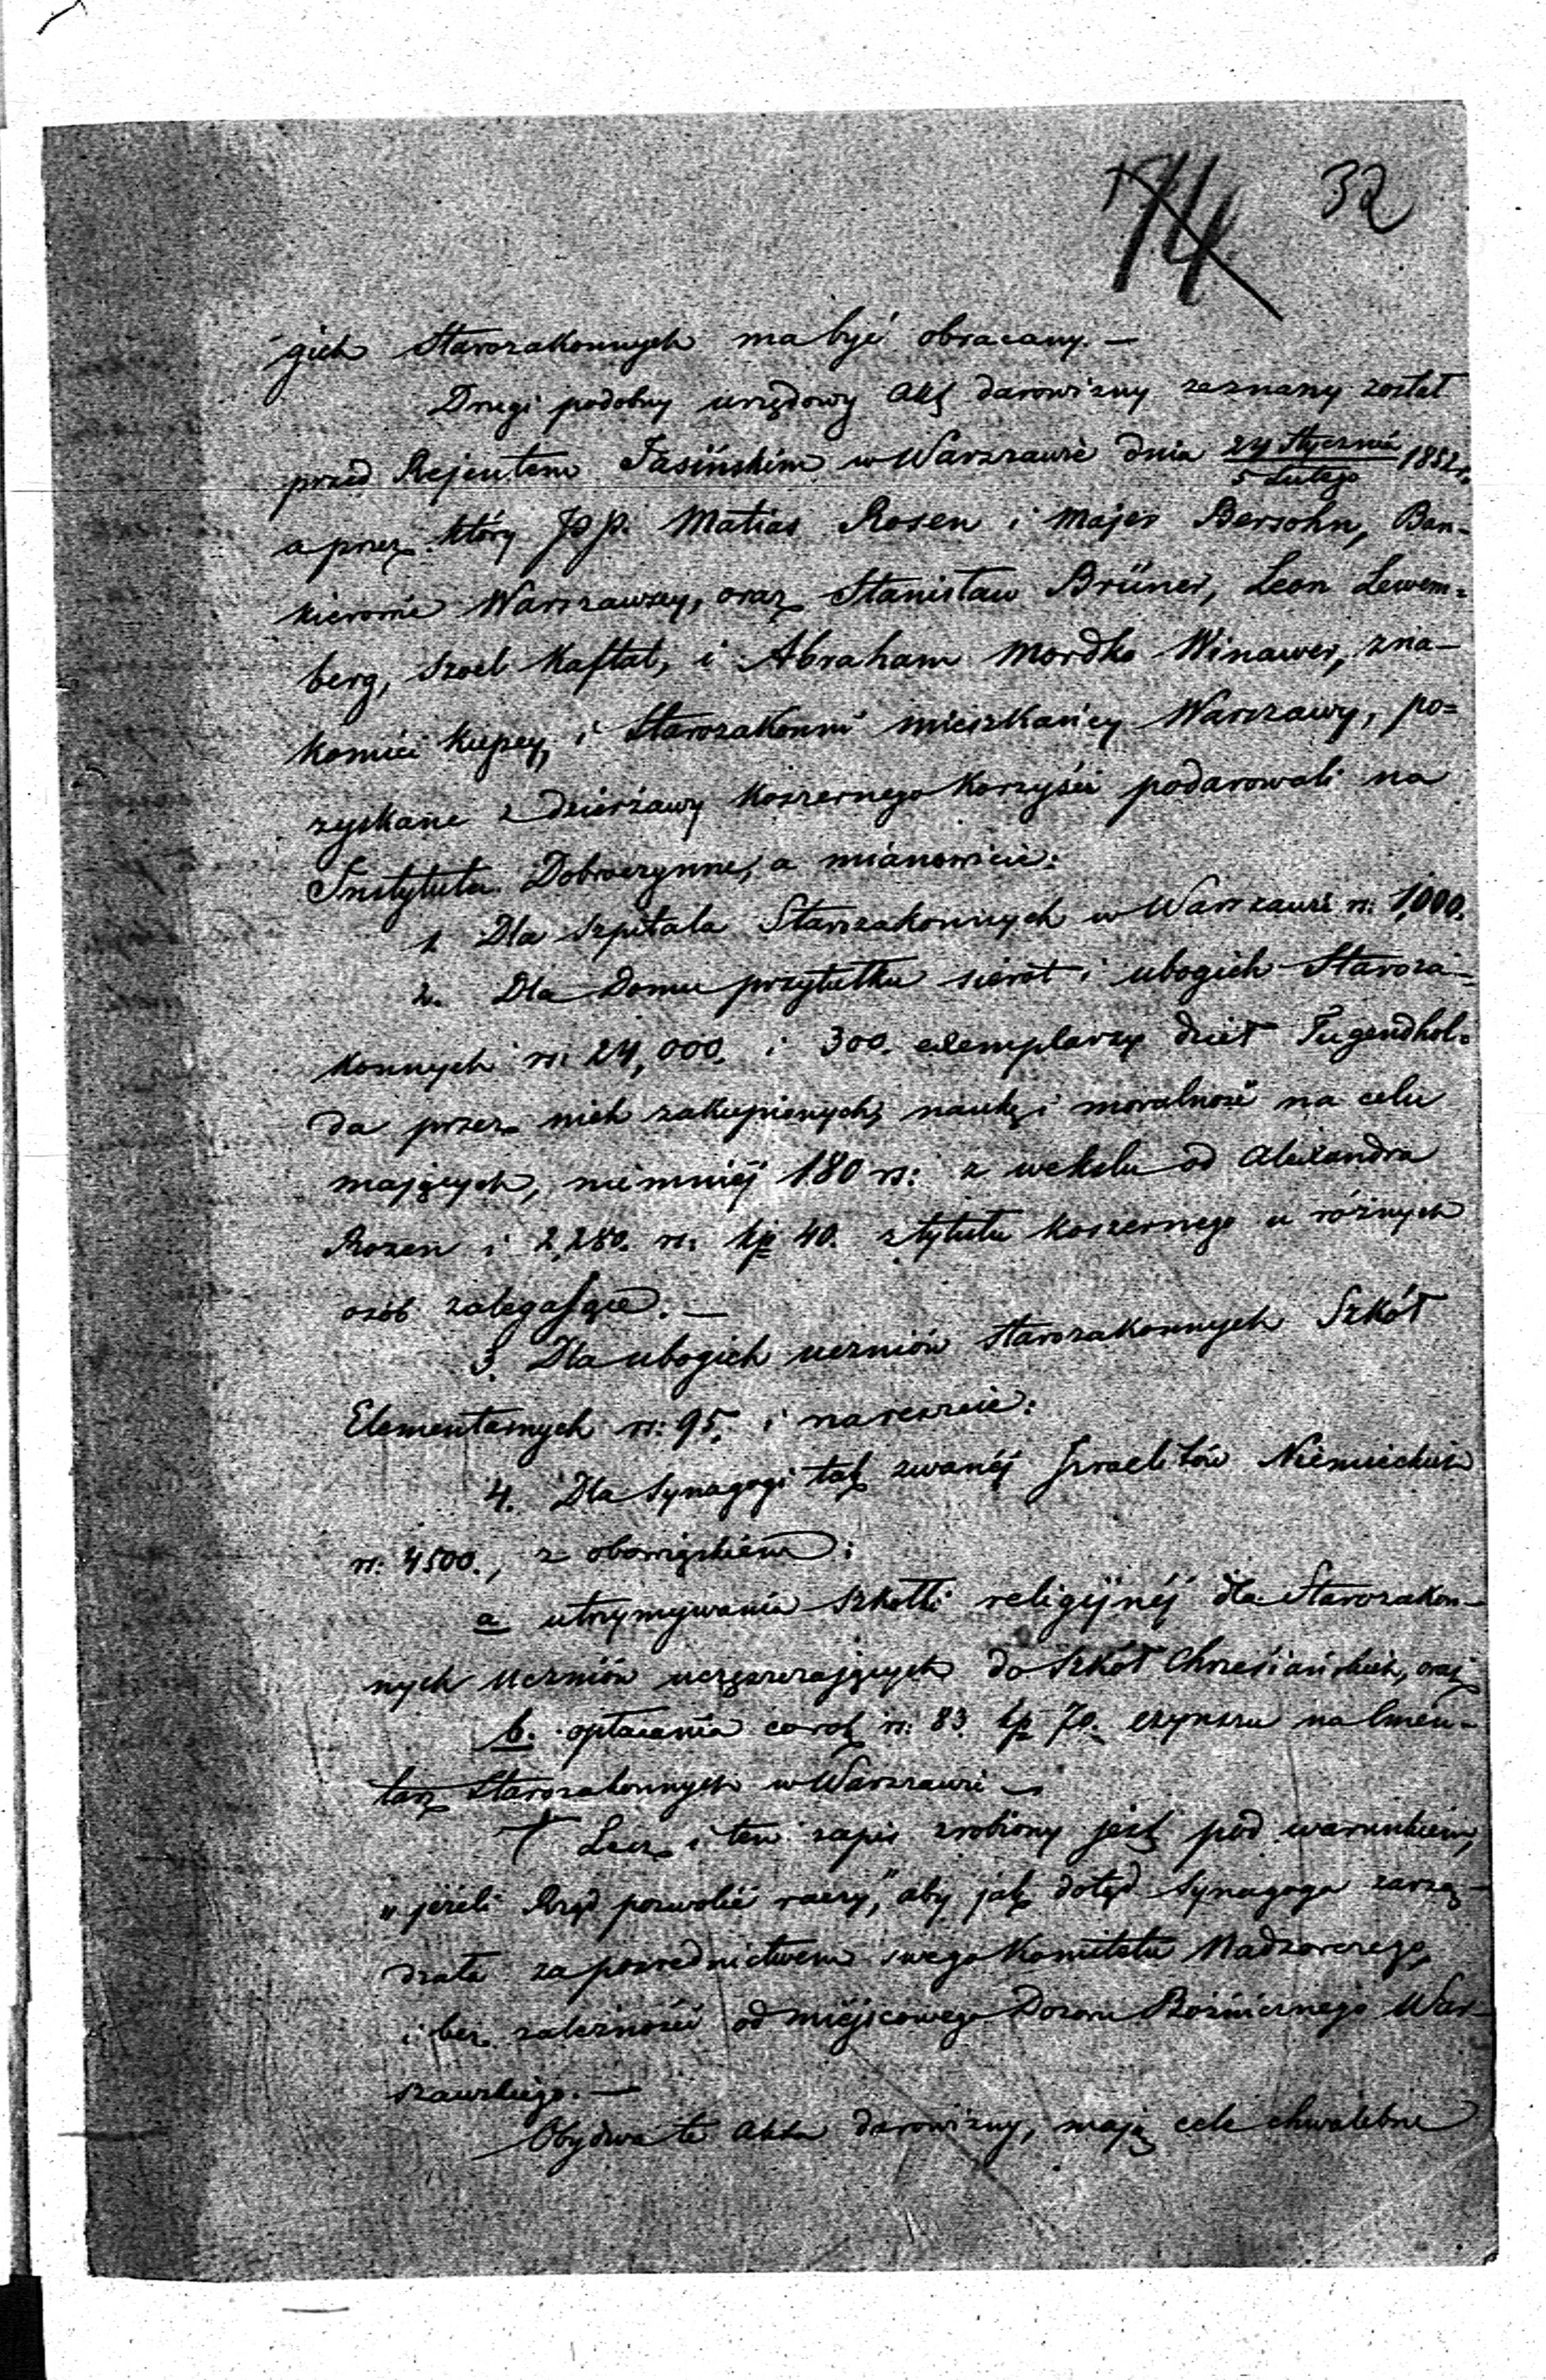 74 32
gich Starozakonnych ma być obracany. —
Drugi podobny urzędowy Akt darowizny zeznany został
przed Rejentem Jasińskim w Warszawie dnia 24 Stycznia / 5 Lutego 1852 r.
a przez który JPP. Matias Rosen i Majer Bersohn, Ban-
kierowie Warszawscy, oraz Stanisław Brüner, Leon Lewem=
berg, Szoel Kaftal, i Abraham Mordko Winawer, zna-
komici Kupcy, i Starozakonni mieszkańcy Warszawy, po=
zyskane z dzierżawy Koszernego Korzyści podarowali na
Instytuta Dobroczynne, a mianowicie:
1. Dla Szpitala Starozakonnych w Warszawie rs: 1,000.
2. Dla Domu przytułku sierot i ubogich Staroza-
konnych rs: 24,000. i 300. exemplarzy dzieł Tugendhol-
da przez nich zakupionych, naukę i moralność na celu
mających, niemniéj 180 rs: z wekslu od Alexandra
Rozen i 2,280. rs: kp 40. z tytułu koszernego u różnych
osób zalegające. —
3. Dla ubogich uczniów starozakonnych Szkół
Elementarnych rs: 95. i nareszcie:
4. Dla Synagogi tak zwanéj Izraelitów Niemieckich
rs: 4500., z obowiązkiem:
a utrzymywania Szkółki religijnéj dla Starozakon-
nych Uczniów uczęszczających do Szkół Chrześciańskich, oraz
b. opłacania corok rs: 83. kp 70. czynszu na Cmen-
tarz Starozakonnych w Warszawie
Lecz i ten zapis zrobiony jest pod warunkiem,
"jeżeli Rząd pozwolić raczy," aby jak dotąd Synagoga zarzą-
dzała za posrednictwem swego Komitetu Nadzorczego,
i bez zależności od miéjscowego Dozoru Bóżniczego War-
szawskiego. —
Obydwa te Akta darowizny, mają cele chwalebne